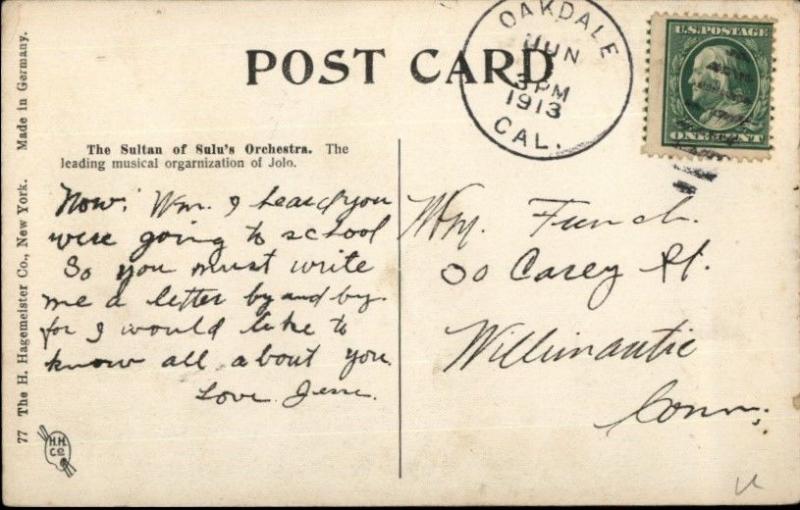 POST CARD
OAKDALE
JUN
3 PM
1913
CAL.
U.S. POSTAGE
ONE CENT
The Sultan of Sulu's Orchestra. The
leading musical orgarnization of Jolo.
Now: Wm. I heard you
were going to school
So you must write
me a letter by and by.
for I would like to
know all about you.
Love
Wm.
Carey St.
Willimantic
Conn.
77 The H. Hagemeister Co., New York. Made in Germany.
H.H.
Co